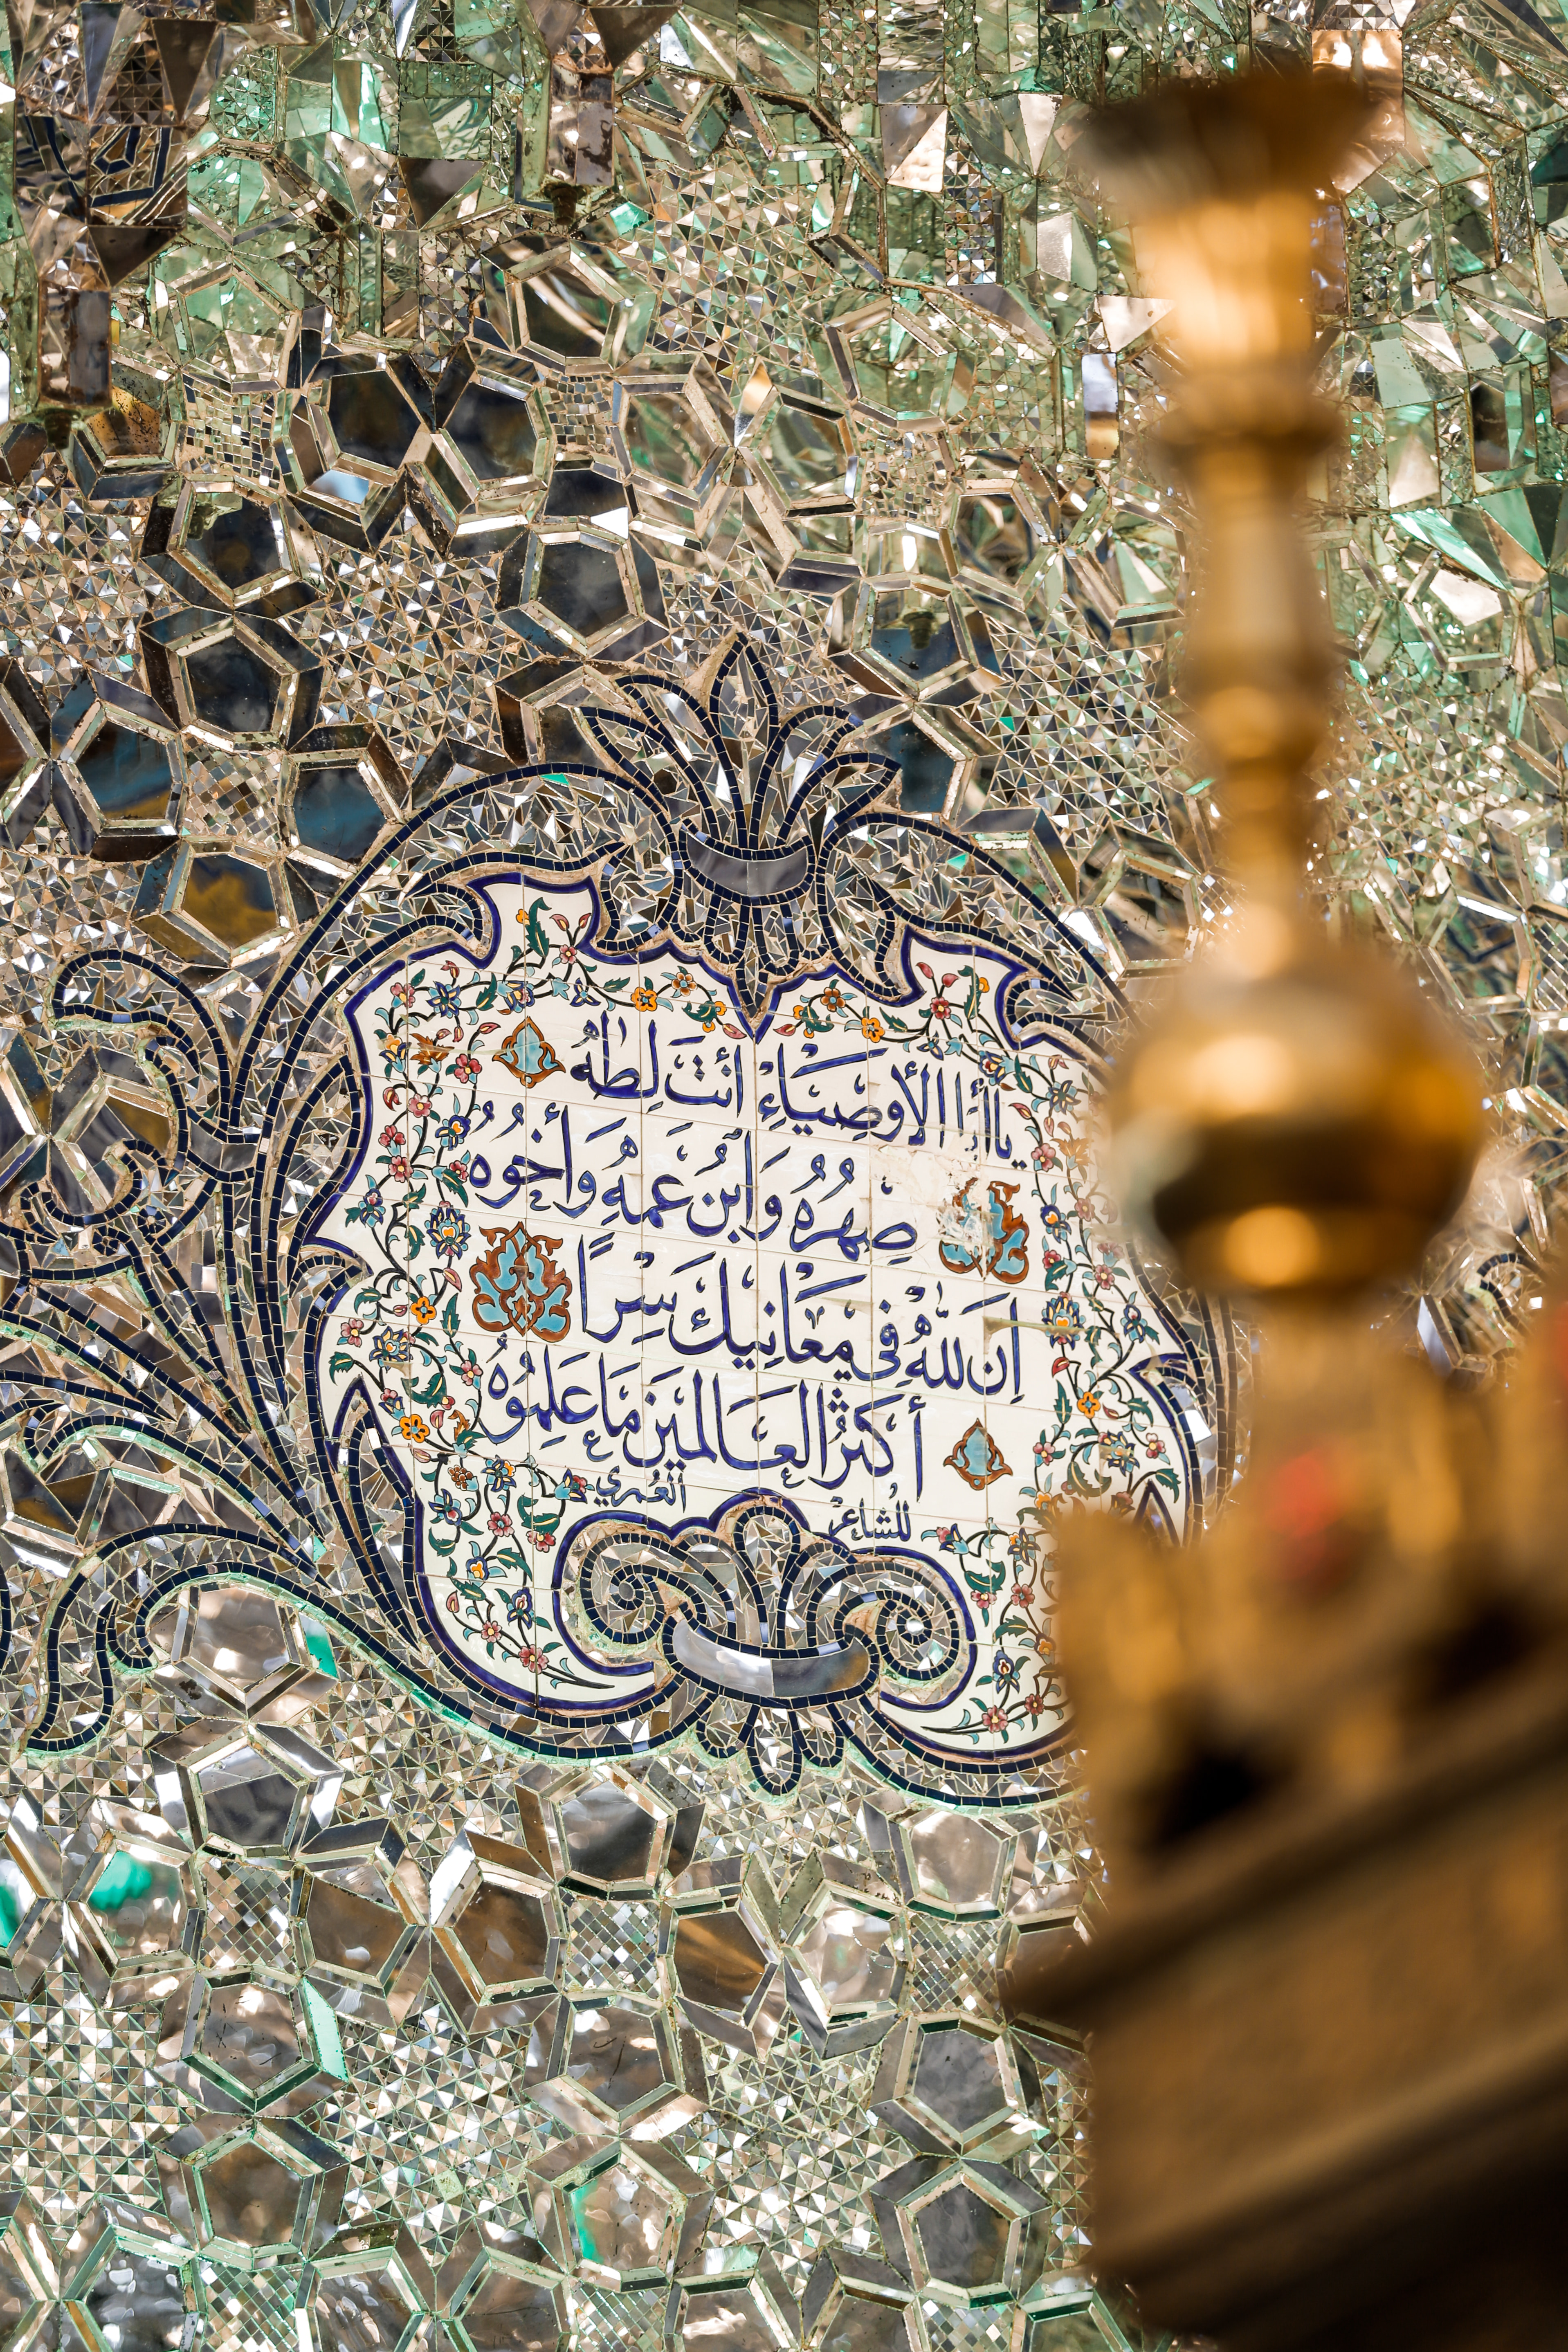 يا أبا الأوصِيَاءِ أنتَ لِطٰهٰ
صِهرُهُ وَابنُ عَمِّهِ وَأخُوُهُ
اِنَ للّٰهِ في مَعَانِيكَ سِراً
أكثَرُ العَالَمينَ مَا عَلِمُوُهُ
للشاعر العُمري